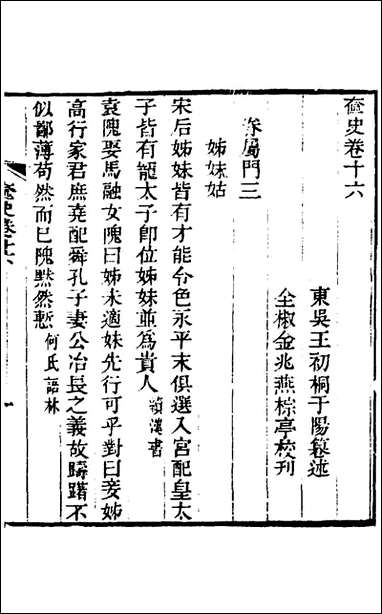 奩史卷十六
東吳王初桐于陽纂述
全椒金兆燕棕亭校刊
眷屬門三
姊妹姑
宋后姊妹皆有才能令色永平末俱選入宮配皇太
子皆有寵太子卽位姊妹並為貴人續漢書
袁隗娶馬融女隗曰姊未適妹先行可乎對曰妾姊
高行家君庶堯配舜孔子妻公冶長之義故躊躇不
似鄙薄苟然而已隗默然慙何氏語林
奩史卷十六
一